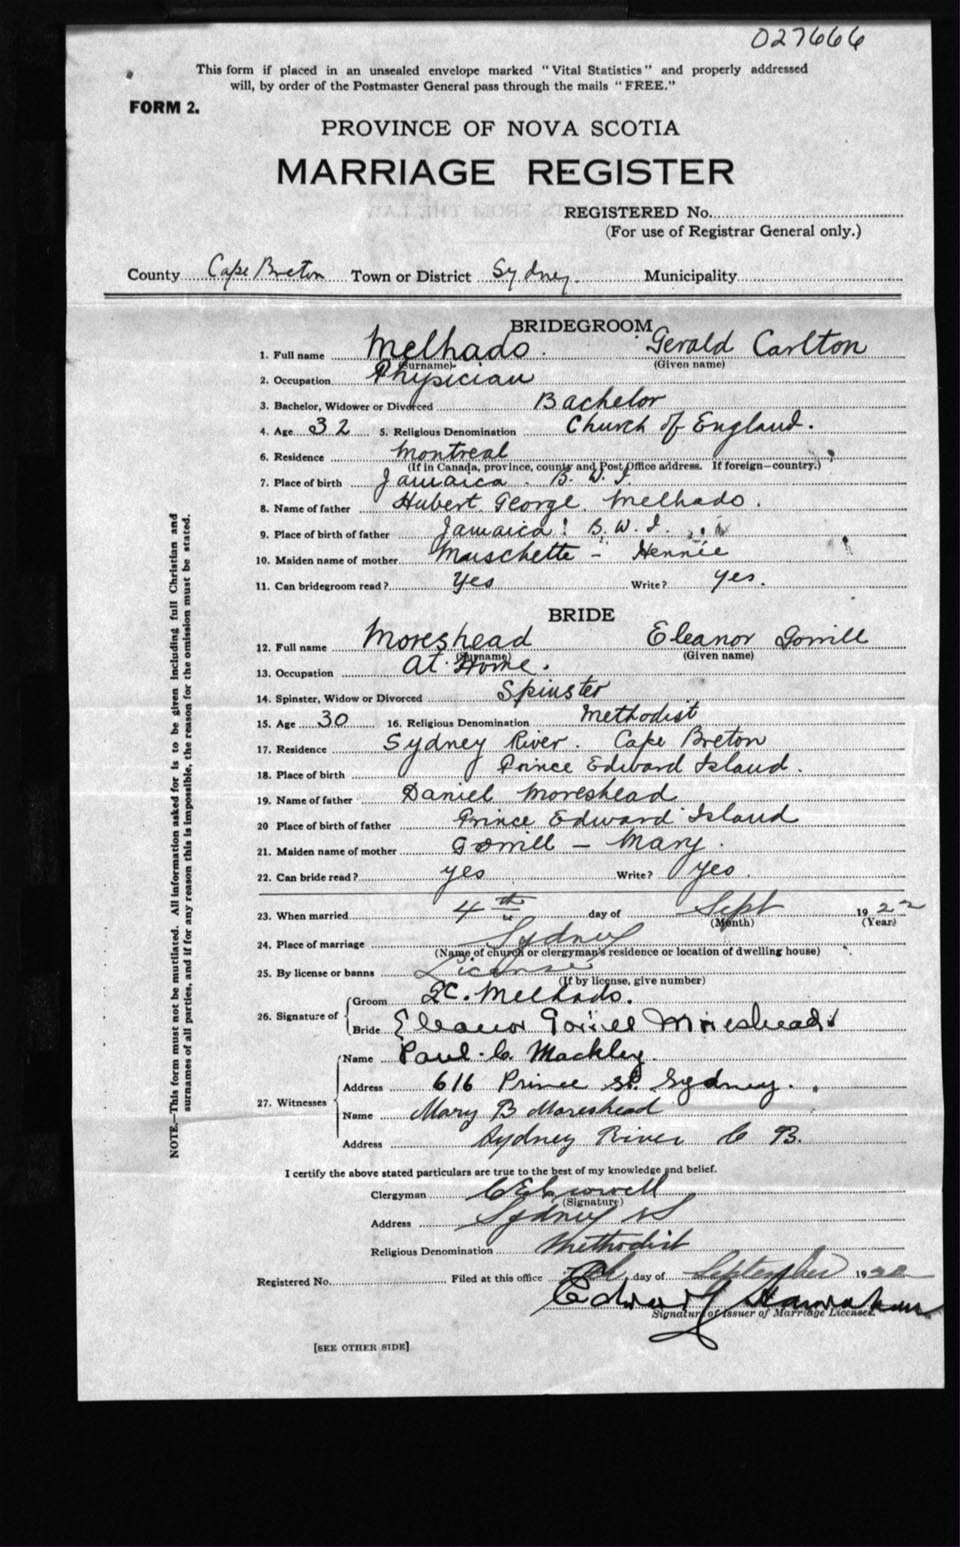 027666
This form if placed in an unsealed envelope marked "Vital Statistics" and properly addressed
will, by order of the Postmaster General pass through the mails "FREE."
FORM 2.
PROVINCE OF NOVA SCOTIA
MARRIAGE REGISTER
REGISTERED No.
(For use of Registrar General only.)
County Cape Breton Town or District Sydney. Municipality
BRIDEGROOM
1. Full name Melhado. Gerald Carlton
(Surname) (Given name)
2. Occupation Physician
3. Bachelor, Widower or Divorced Bachelor
4. Age 32 5. Religious Denomination Church of England.
6. Residence Montreal
(If in Canada, province, county and Post Office address. If foreign—country.)
7. Place of birth Jamaica. B. W. I.
8. Name of father Hubert George Melhado.
9. Place of birth of father Jamaica! B. W. I.
10. Maiden name of mother Maschette - Hennie
11. Can bridegroom read? Yes Write? Yes.
BRIDE
12. Full name Moreshead Eleanor Gorrill
(Surname) (Given name)
13. Occupation At Home.
14. Spinster, Widow or Divorced Spinster
15. Age 30 16. Religious Denomination Methodist
17. Residence Sydney River. Cape Breton
18. Place of birth Prince Edward Island.
19. Name of father Daniel Moreshead
20 Place of birth of father Prince Edward Island
21. Maiden name of mother Gorrill - Mary.
22. Can bride read? yes Write? Yes.
23. When married 4th day of Sept 1922
(Month) (Year)
24. Place of marriage Sydney
(Name of church or clergyman's residence or location of dwelling house)
25. By license or banns License
(If by license, give number)
26. Signature of Groom Melhado.
Bride Eleanor Gorrill Moreshead
27. Witnesses Name Paul. C. Mackley.
Address 616 Prince St. Sydney.
Name Mary B Moreshead
Address Sydney River C B.
I certify the above stated particulars are true to the best of my knowledge and belief.
Clergyman
(Signature)
Address Sydney NS
Religious Denomination Methodist
Registered No. Filed at this office day of September 1922
Edward
Signature of Issuer of Marriage Licenses.
[SEE OTHER SIDE]
NOTE.—This form must not be mutilated. All information asked for is to be given including full Christian and
surnames of all parties, and if for any reason this is impossible, the reason for the omission must be stated.